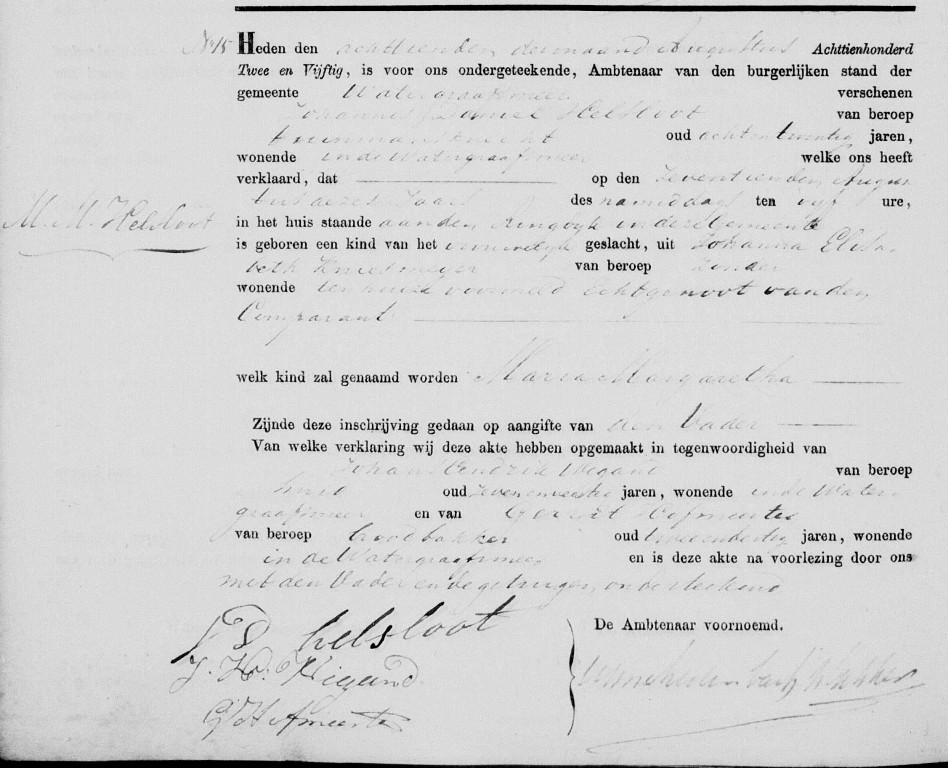 No 15
Heden den achttienden der maand Augustus Achttienhonderd
Twee en Vijftig, is voor ons ondergeteekende, Ambtenaar van den burgerlijken stand der
gemeente Watergraafsmeer verschenen
Johannes Daniel Helsloot van beroep
tuinmansknecht oud achtentwintig jaren,
wonende in de Watergraafsmeer welke ons heeft
verklaard, dat op den zeventienden Augus
tus dezes Jaars des namiddags ten vijf ure,
M. M. Helsloot
in het huis staande aanden Ringdijk in deze Gemeente
is geboren een kind van het vrouwelijk geslacht, uit Johanna Elisa
beth van beroep zonder
wonende ten huize voormeld Echtgenoot van den
Comparant
welk kind zal genaamd worden Maria Margaretha
Zijnde deze inschrijving gedaan op aangifte van den Vader
Van welke verklaring wij deze akte hebben opgemaakt in tegenwoordigheid van
Johan Hendrik Wigand van beroep
smid oud jaren, wonende in de Water
graafsmeer en van Gerrit Hofmeester
van beroep broodbakker oud jaren, wonende
in de Watergraafsmeer en is deze akte na voorlezing door ons
met den Vader en de getuigen, onderteekend
J D helsloot
De Ambtenaar voornoemd.
J. H. Wigand
G Hofmeester